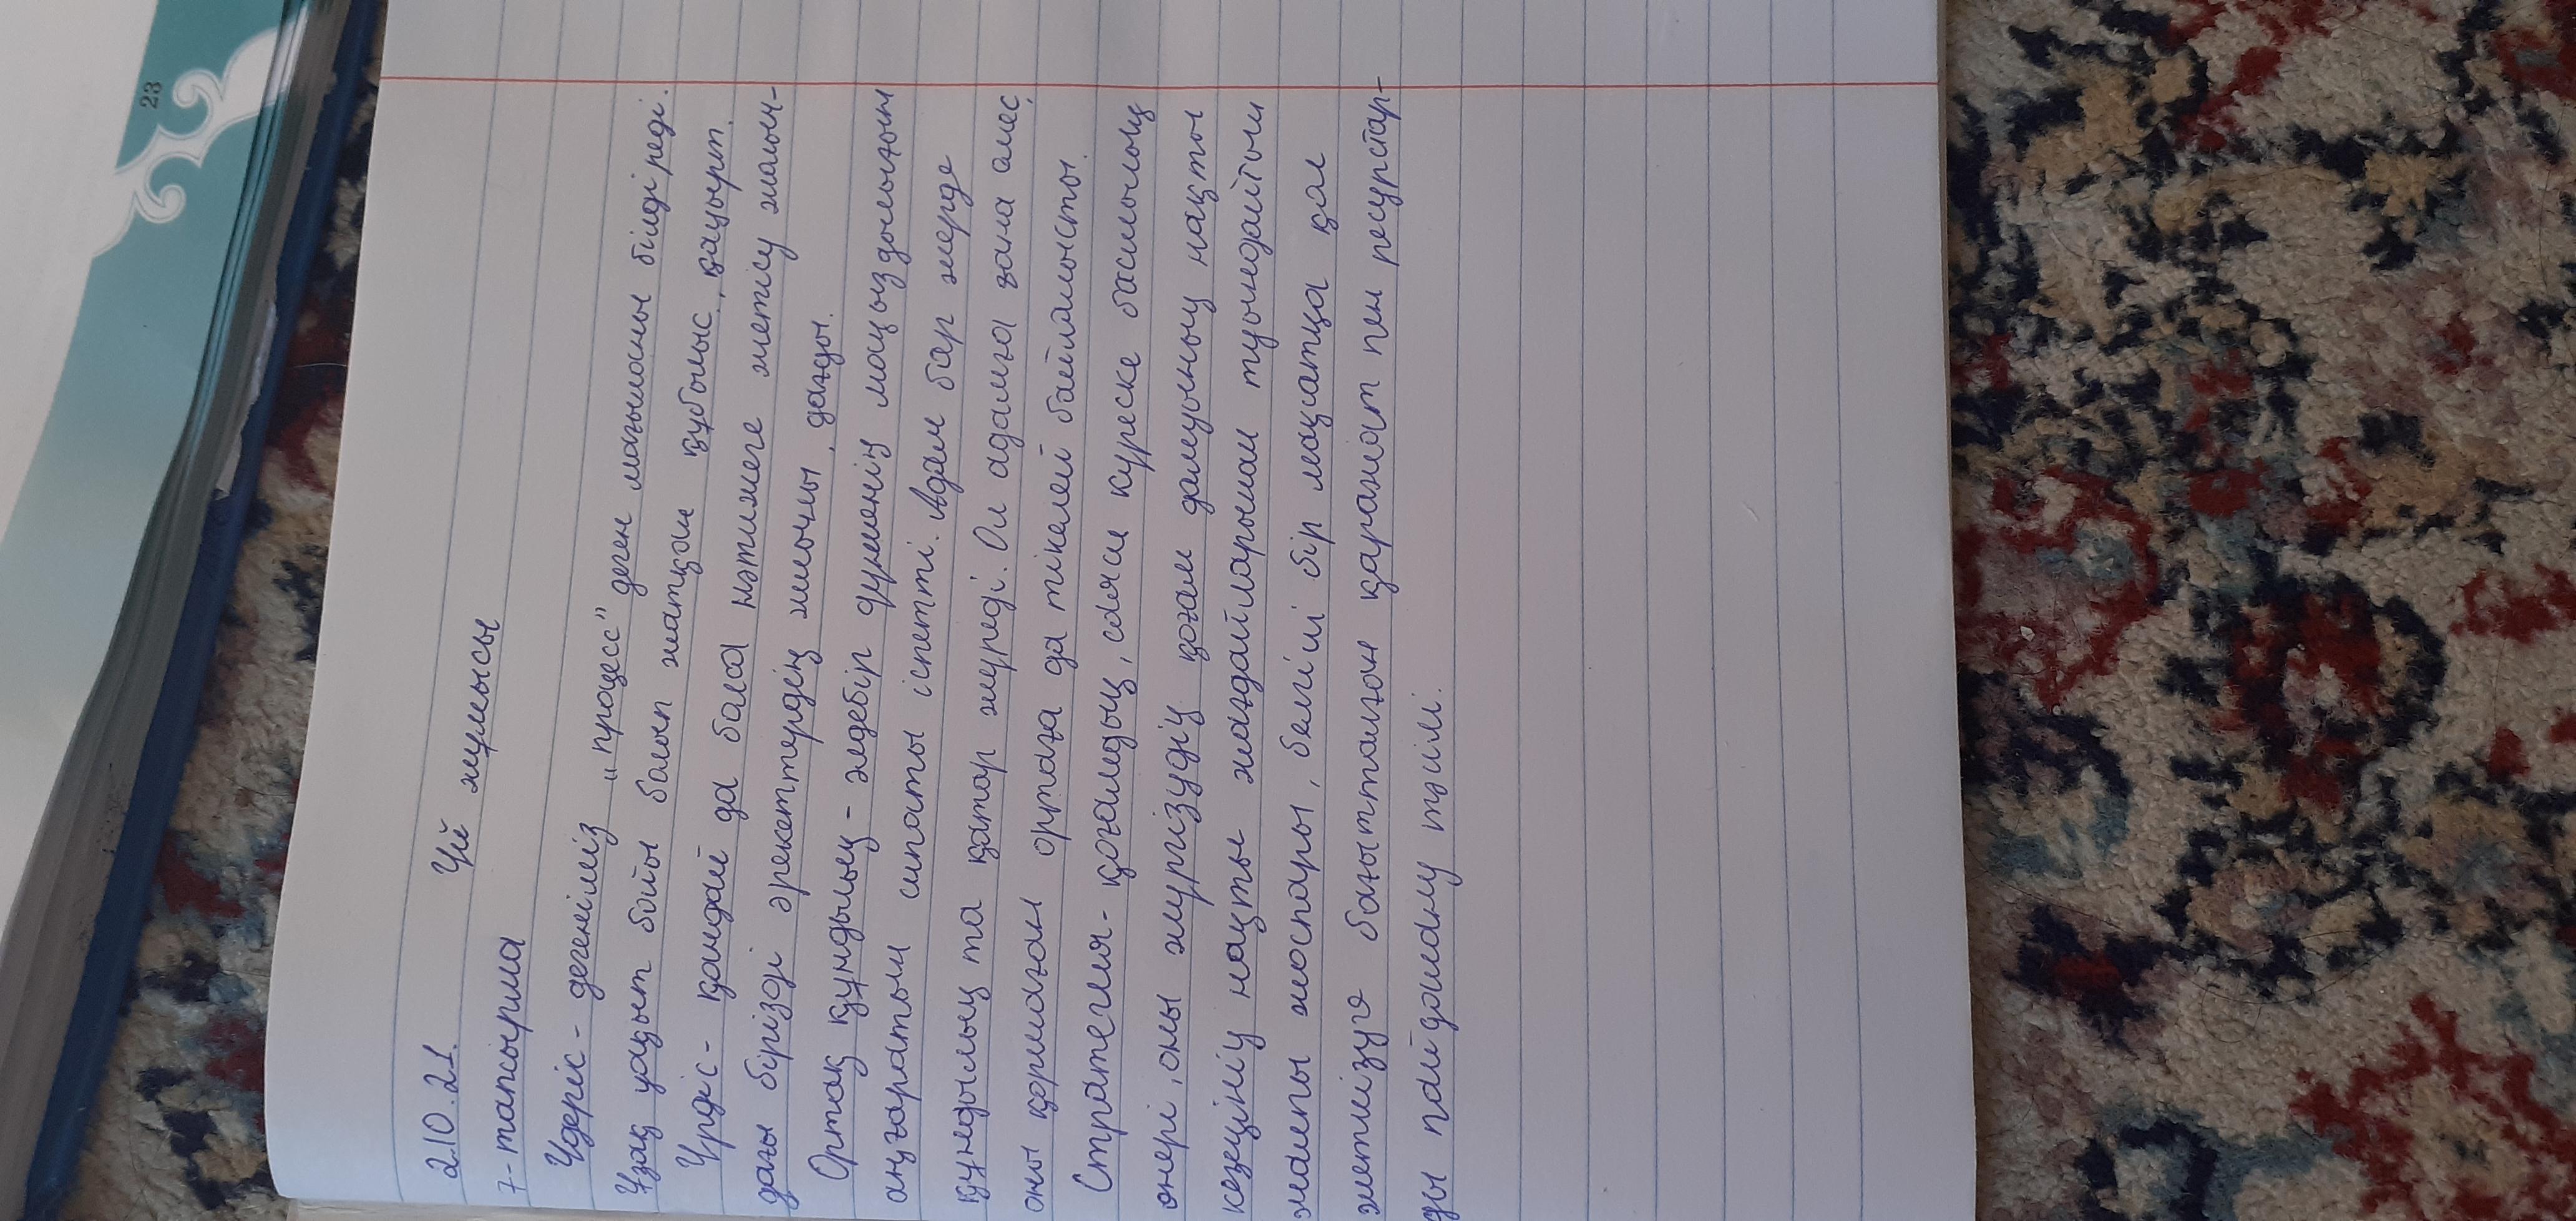 23
2.10.21. Үй жұмысы
7-тапсырма
Үдеріс - дегеніміз „процесс" деген мағынаны білдіреді.
Ұзақ уақыт бойы болып жатқан құбылыс, қауырт.
Үрдіс - қандай да болса нәтижеге жетісу жолын-
дағы бірізді әрекеттердің жиыны, дағды.
Ортақ құндылық - әлдебір дүниенің маңыздылығын
аңғаратын сипаты іспетті. Адам бар жерде
құндылық та қатар жүреді. Ол адамға ғана емес,
оны қоршаған ортаға да тікелей байланысты.
Стратегия - қоғамдық, саяси күреске басшылық
өнері, оны жүргізудің қоғам дамуының нақты
кезеңінің нақты жағдайларынан туындайтын
жалпы жоспары, белгілі бір мақсатқа қол
жеткізуге бағытталған қаражат пен ресурстар-
ды пайдалану тәсілі.